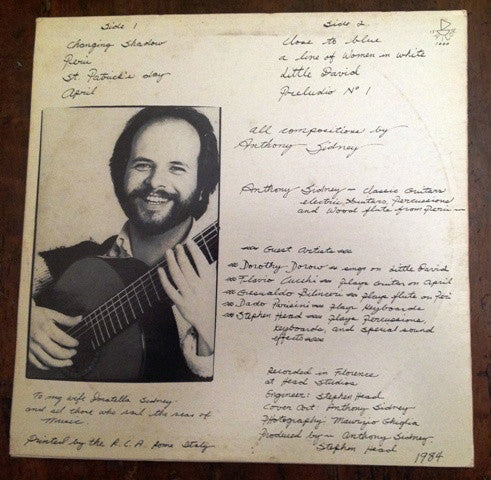 Side 1
Changing Shadow
Perii
St. Patrick's day
April
Side 2
Close to blue
a line of Women in white
Little David
Preludio Nº 1
all compositions by
Anthony Sidney
Anthony Sidney — Classic Guitars
electric Guitars, Percussions
and Wood flute from Peru —
Guest Artists
Dorothy Dorow sings on Little David
Flavio Cucchi plays Guitar on April
Gesualdo plays flute on
Dado Parisini plays Keyboards
Stephen Head plays Percussions,
Keyboards, and special sound
effects
To my wife Donatella Sidney
and all those who sail the seas of
Music
Printed by the R.C.A. Rome Italy
Recorded in Florence
at Head Studios
Engineer: Stephen Head
Cover Art Anthony Sidney
Photography Maurizio Ghiglia
Produced by — Anthony Sidney
Stephen Head
1984